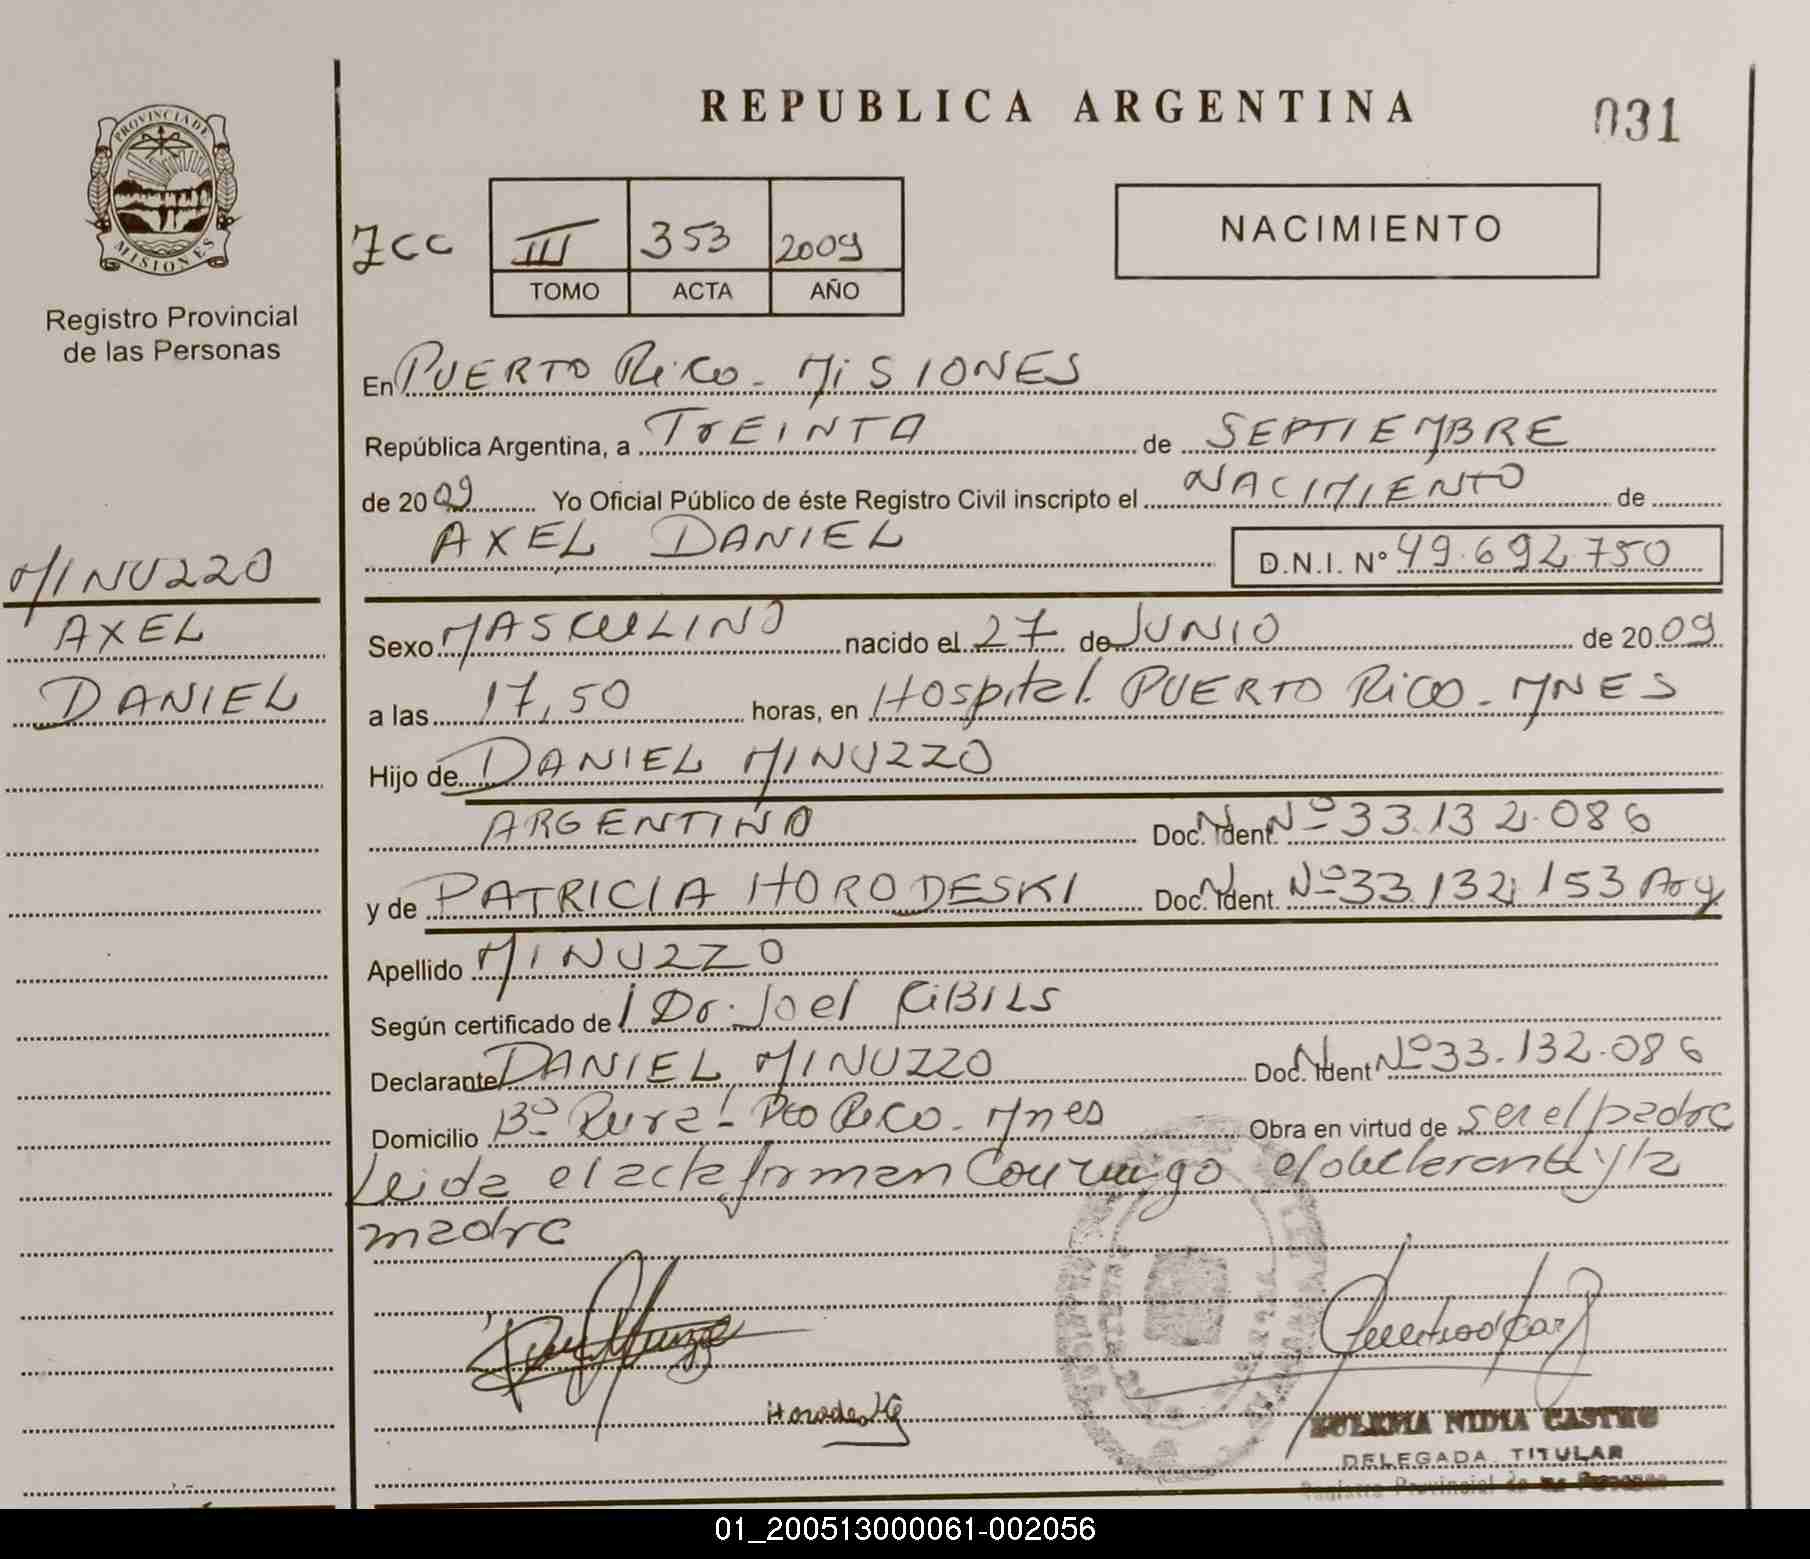 REPUBLICA ARGENTINA
031
PROVINCIA DE
MISIONES
Registro Provincial
de las Personas
III 353 2009
TOMO ACTA AÑO
NACIMIENTO
En PUERTO RiCo - MiSIONES
República Argentina, a TrEINTA de SEPTIEMBRE
de 2009 Yo Oficial Público de éste Registro Civil inscripto el NACIMIENTO de
AXEL DANIEL D.N.I. N° 49.692.750
MINUZZO
AXEL
DANIEL
Sexo MASCULINO nacido el 27 de JUNIO de 2009
a las 17,50 horas, en Hospital PUERTO RiCO - MNES
Hijo de DANIEL MINUZZO
ARGENTINO Doc. Ident. Nº 33.132.086
y de PATRICIA HORODESKI Doc. Ident. Nº 33.132.153 Arg
Apellido MINUZZO
Según certificado de Dr. Joel RiBILS
Declarante DANIEL MINUZZO Doc. Ident Nº 33.132.086
Domicilio Bº Rural - Pto Rico - Mnes Obra en virtud de ser el padre
Leida el acta firman Conmigo el declarante y la
madre
NIDIA CASTRO
DELEGADA TITULAR
Registro Provincial de las Personas
01_200513000061-002056